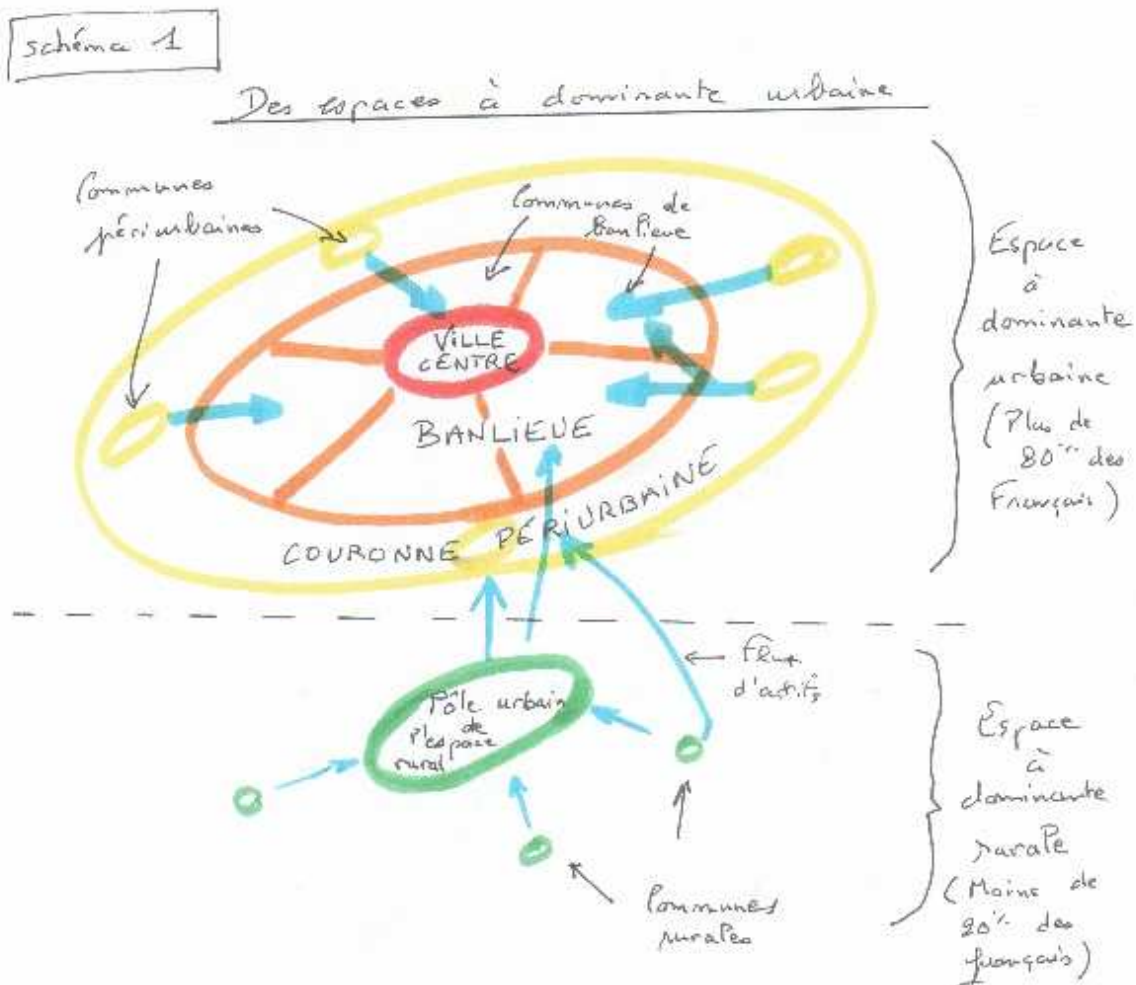 schéma 1
Des espaces à dominante urbaine
Communes
périurbaines
Communes de
banlieue
VILLE
CENTRE
BANLIEUE
COURONNE PÉRIURBAINE
Espace
à
dominante
urbaine
(Plus de
80% des
Français)
Flux
d'actifs
Pôle urbain
de
l'espace
rural
Communes
rurales
Espace
à
dominante
rurale
(Moins de
20% des
français)